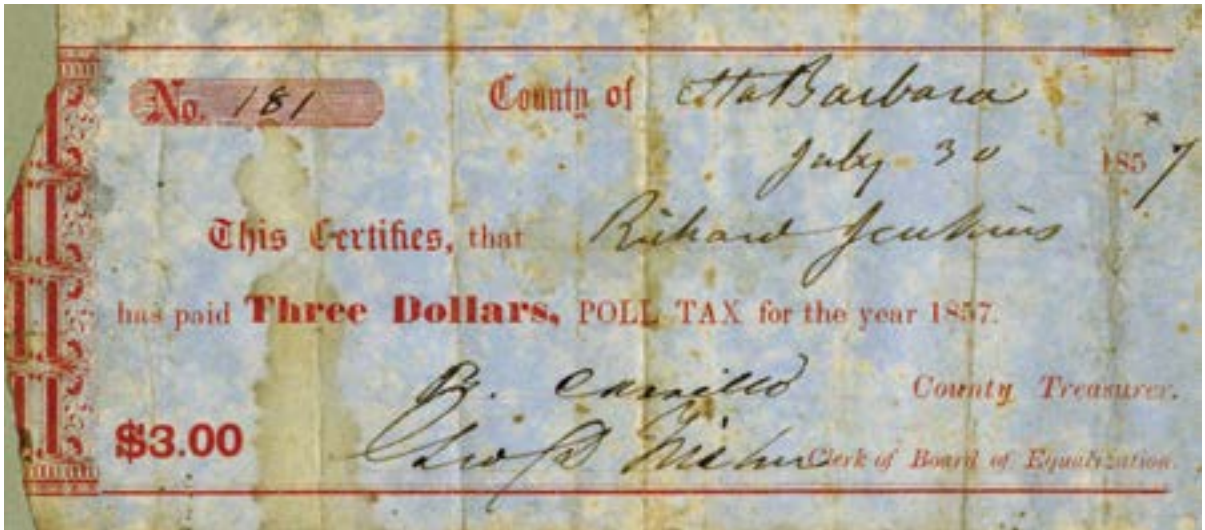 No. 181 County of Sta Barbara
July 30 1857
This Certifies, that Richard Jenkins
has paid Three Dollars, POLL TAX for the year 1857.
R. Carrillo County Treasurer.
$3.00 Geo D Clerk of Board of Equalization.